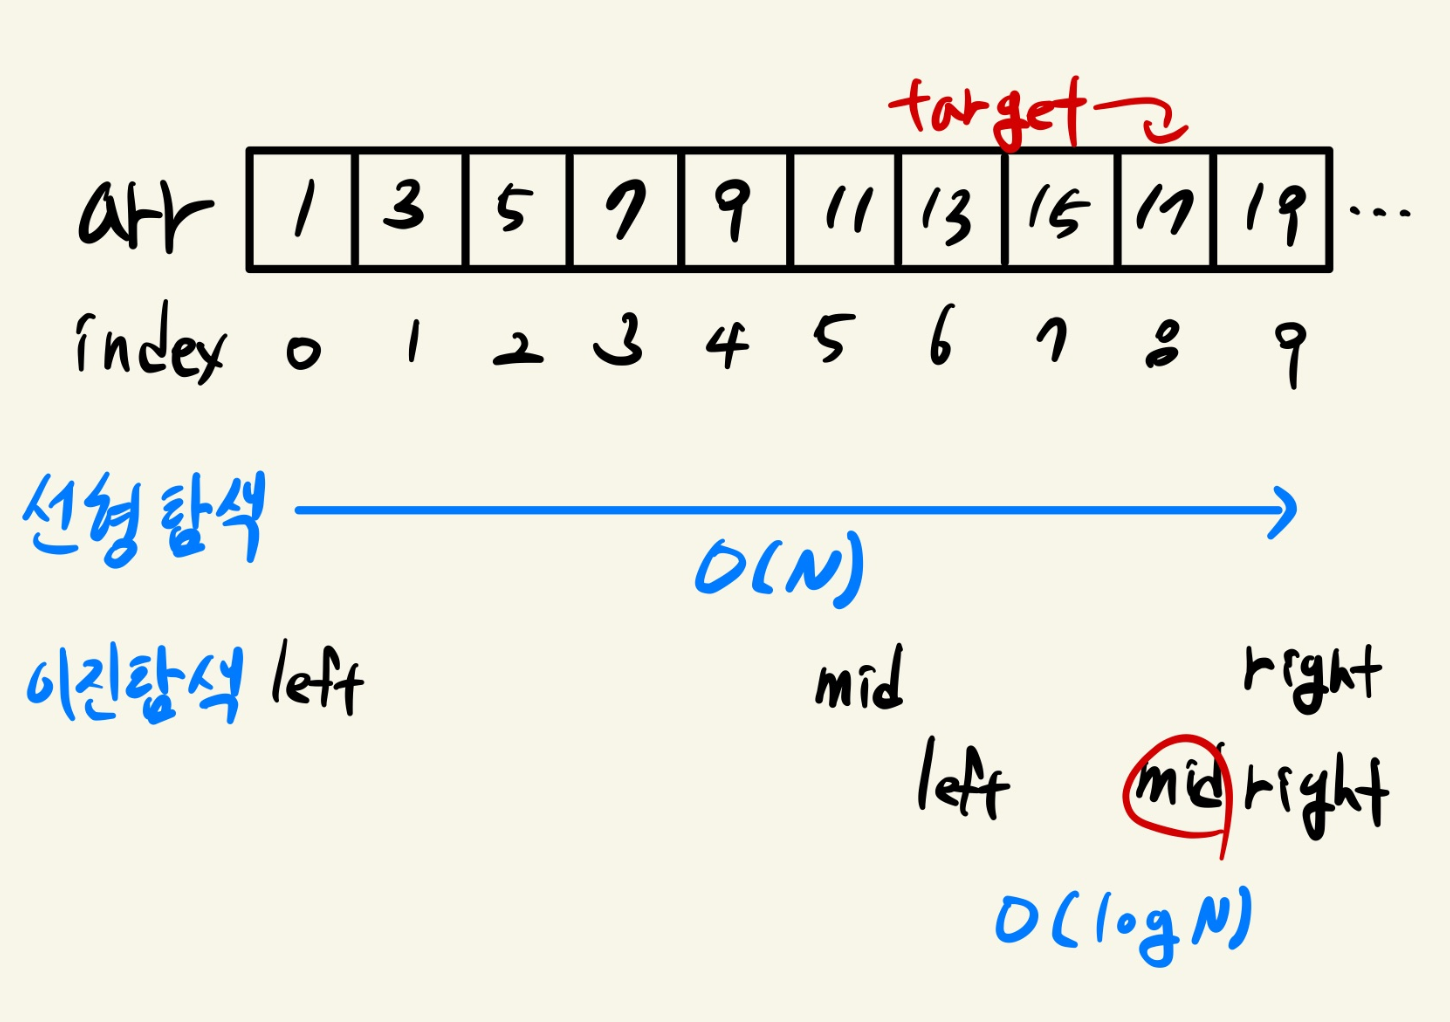 target
arr 1 3 5 7 9 11 13 15 17 19 ...
index 0 1 2 3 4 5 6 7 8 9
선형탐색
O(N)
이진탐색 left mid right
left mid right
O(logN)